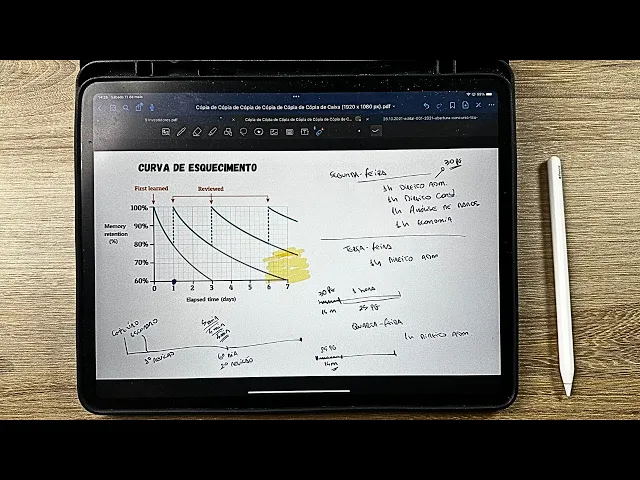 Cópia de Cópia de Cópia de Cópia de Cópia de Cópia de Caixa (1920 x 1080 px).pdf
CURVA DE ESQUECIMENTO
First learned
Reviewed
Memory
retention
(%)
100%
90%
80%
70%
60%
0 1 2 3 4 5 6 7
Elapsed time (days)
1ª REVISÃO
6º DIA
2ª REVISÃO
SEGUNDA-FEIRA
30 PG
1h DIREITO ADM.
1h DIREITO CONST
1h ANÁLISE DE DADOS
1h ECONOMIA
TERÇA-FEIRA
1h DIREITO ADM
30 PG
1 HORA
15 m
25 PG
QUARTA-FEIRA
1h DIREITO ADM
25 PG
15m